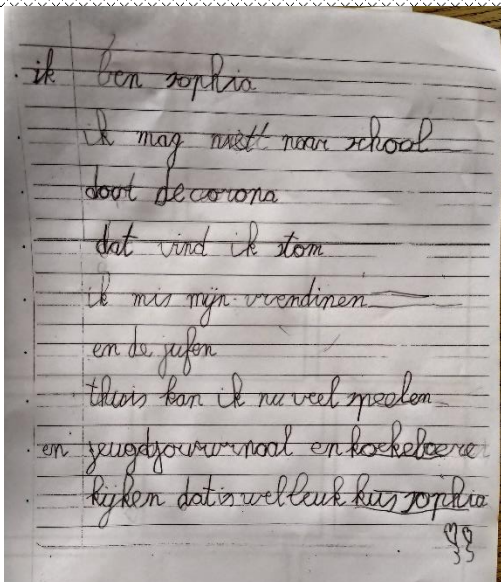 ik ben sophia
ik mag niett naar school
door de corona
dat vind ik stom
ik mis mijn vrendinen
en de jufen
thuis kan ik nu veel speelen
en jeugdjouwurnaal en koekeloere
kijken dat is wel leuk kus sophia